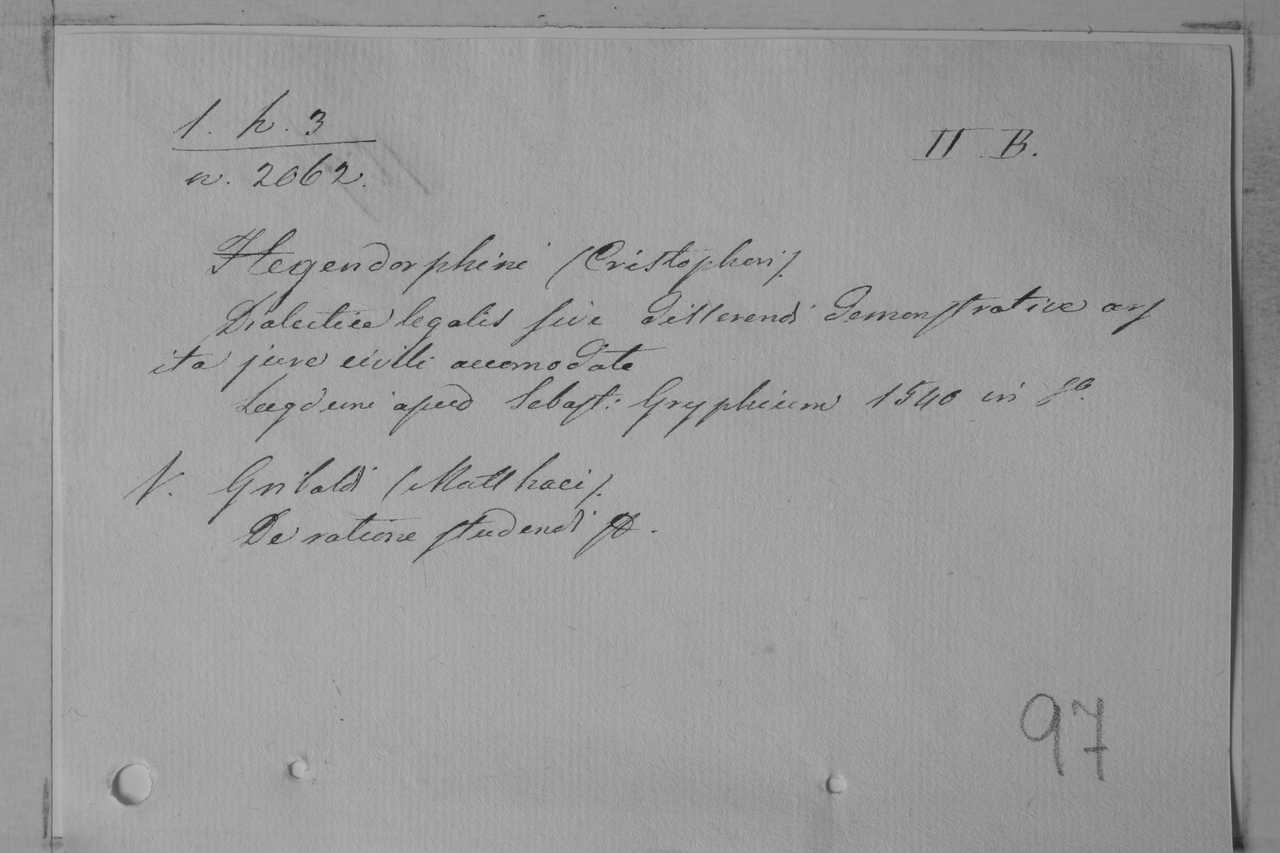 1. h. 3
II B.
n. 2062.
Hegendorphini (Cristophori).
Dialectice legalis sive disserendi demonstrative ars
ita jure civili accomodate
Lugduni apud Sebast: Gryphium 1540 in 8o.
V. Gribaldi (Matthaei).
De ratione studendi
97